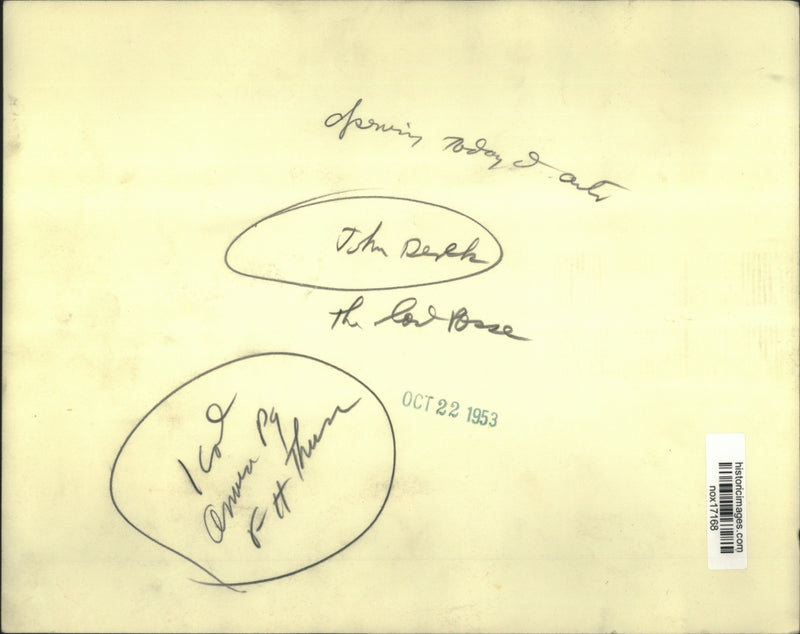 opening today
John Derek
The Last Posse
OCT 22 1953
1 Col
Amuse Pg
Thurs
historicimages.com
nox17168